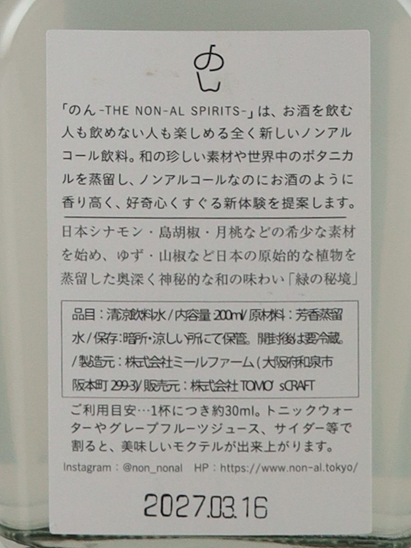 のん
「のん-THE NON-AL SPIRITS-」は、お酒を飲む
人も飲めない人も楽しめる全く新しいノンアル
コール飲料。和の珍しい素材や世界中のボタニカ
ルを蒸留し、ノンアルコールなのにお酒のように
香り高く、好奇心くすぐる新体験を提案します。
日本シナモン・島胡椒・月桃などの希少な素材
を始め、ゆず・山椒など日本の原始的な植物を
蒸留した奥深く神秘的な和の味わい「緑の秘境」
品目：清涼飲料水/内容量:200ml/原材料：芳香蒸留
水/保存:暗所・涼しい所にて保管。開封後は要冷蔵。
/製造元：株式会社ミールファーム(大阪府和泉市
阪本町 299-3)/販売元：株式会社 TOMO'sCRAFT
ご利用目安…1杯につき約30ml。トニックウォー
ターやグレープフルーツジュース、サイダー等で
割ると、美味しいモクテルが出来上がります。
Instagram：@non_nonal HP：https://www.non-al.tokyo/
2027.03.16